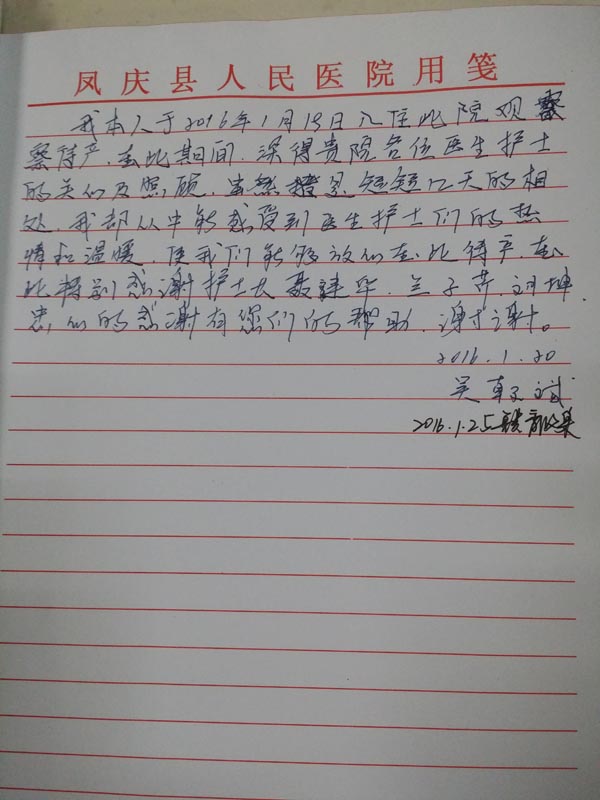 凤庆县人民医院用笺
我本人于2016年1月19日入住此院观
察待产,在此期间,深得贵院各位医生护士
的关心及照顾,虽然是短短几天的相
处,我却从中能感受到医生护士们的热
情和温暖,使我们能够放心在此待产,在
此特别感谢护士长聂建华、兰子芹、
忠心的感谢有您们的帮助,谢谢。
2016.1.20
吴
2016.1.25